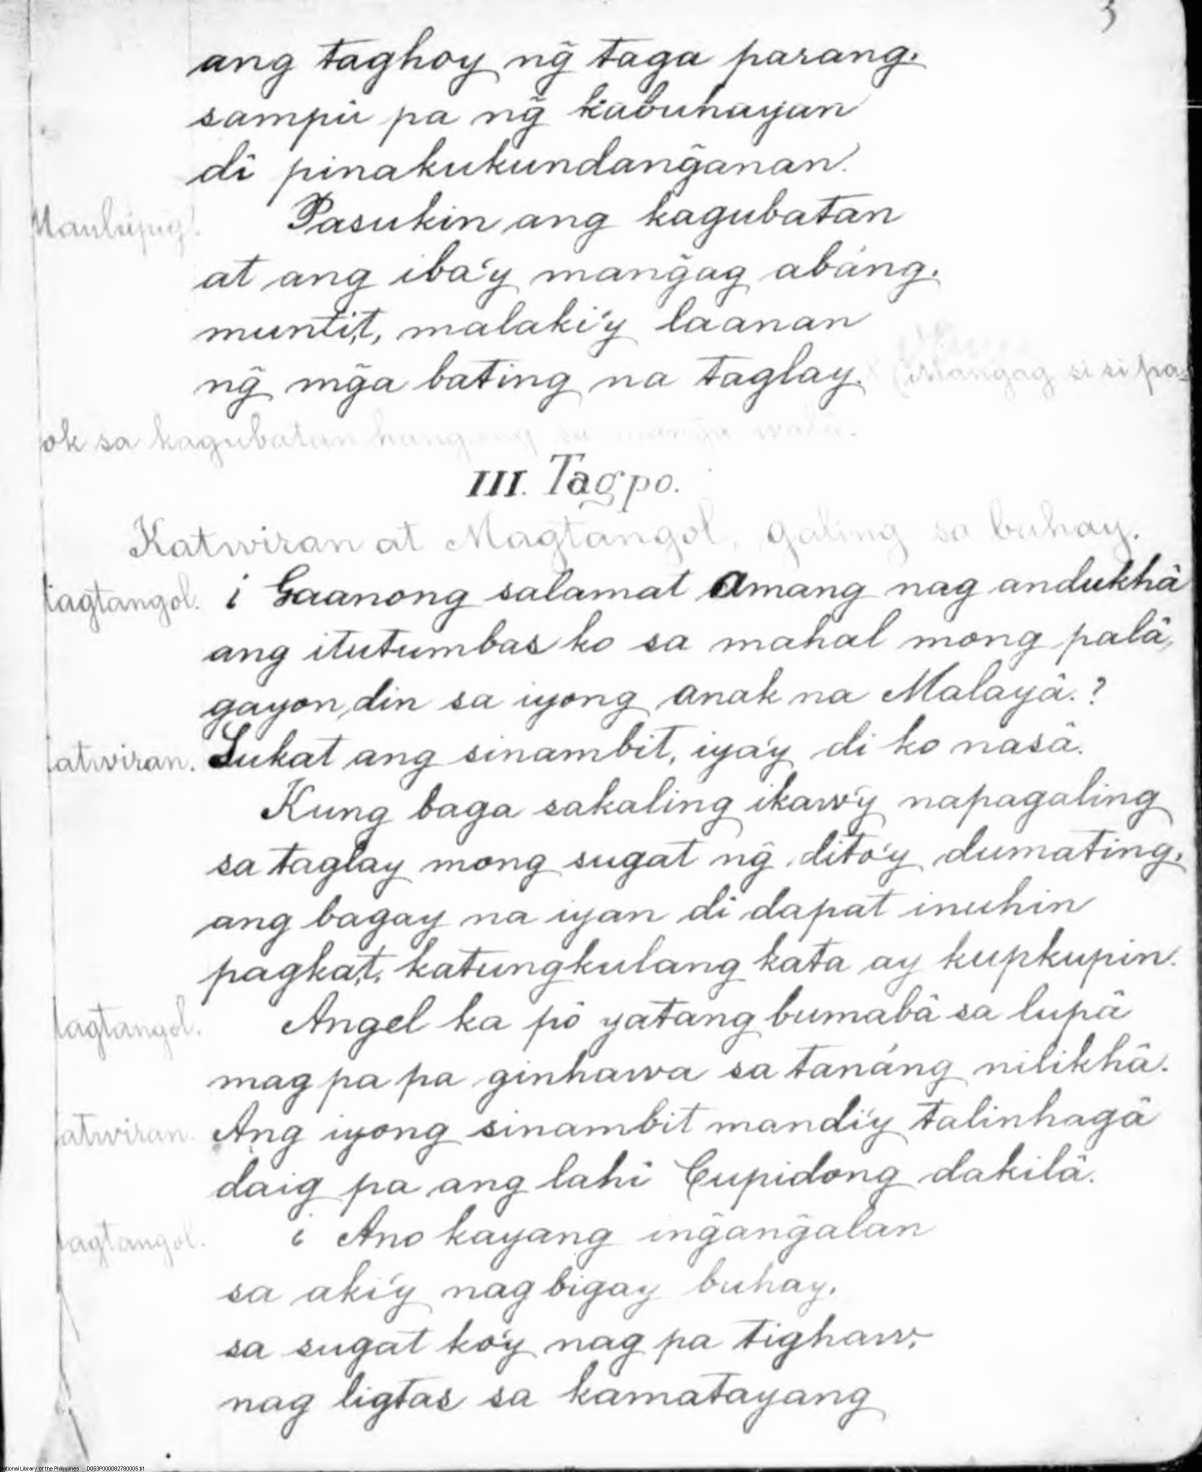 3
ang taghoy ng̃ taga parang.
sampû pa ng̃ kabuhayan
di pinakukundang̃anan.
Maulúpig. Pasukin ang kagubatan
at ang iba'y mang̃ag abáng.
muntit, malaki'y laanan
ng̃ mg̃a bating na taglay. (Mangag si si pa-
ok sa kagubatan
III. Tagpo.
Katwiran at Magtangol, galing sa buhay.
agtangol. ¿ Gaanong salamat Amang nag andukhâ
ang itutumbas ko sa mahal mong palâ,
gayon din sa iyong anak na Malayâ.?
atwiran. Lukat ang sinambit, iya'y di ko nasâ.
Kung baga sakaling ikaw'y napagaling
sa taglay mong sugat ng̃ dito'y dumating,
ang bagay na iyan di dapat inuhin
pagkat, katungkulang kata ay kupkupin.
agtangol. Angel ka pô yatang bumabâ sa lupâ
mag pa pa ginhawa sa tanáng nilikhâ.
atwiran. Ang iyong sinambit mandi'y talinhagâ
daig pa ang lahi Cupidong dakilâ.
agtangol. ¿ Ano kayang ing̃ang̃alan
sa aki'y nag bigay buhay,
sa sugat ko'y nag pa tighaw,
nag ligtas sa kamatayang
National Library of the Philippines